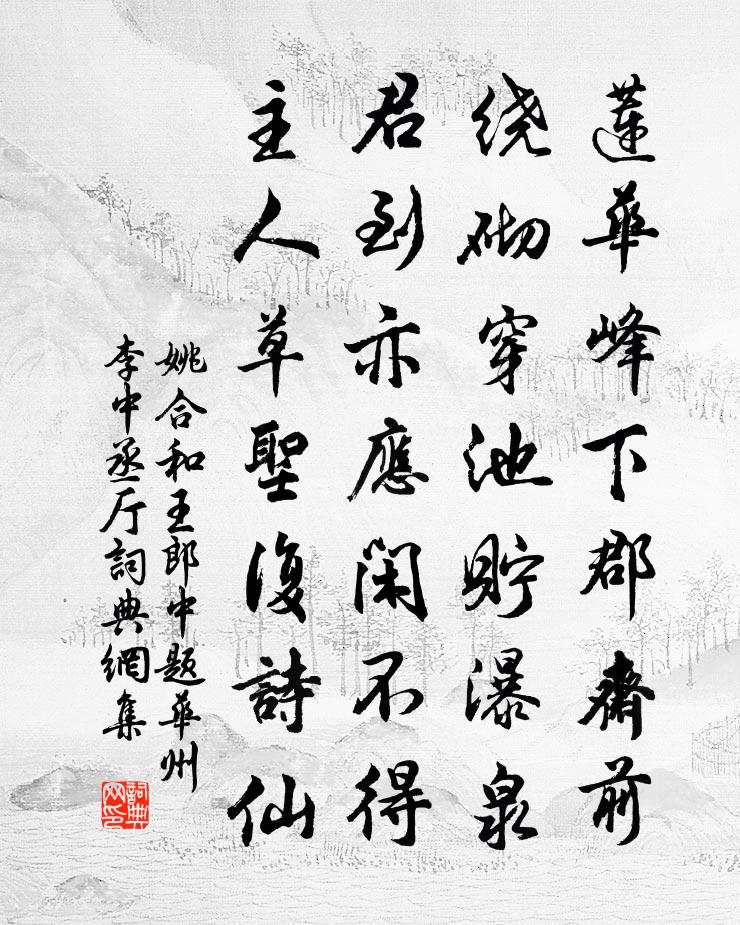 蓮華峰下郡齋前
绕砌穿池貯瀑泉
君到亦應閑不得
主人草聖復詩仙
姚合和王郎中题華州
李中丞厅詞典網集
詞典网印